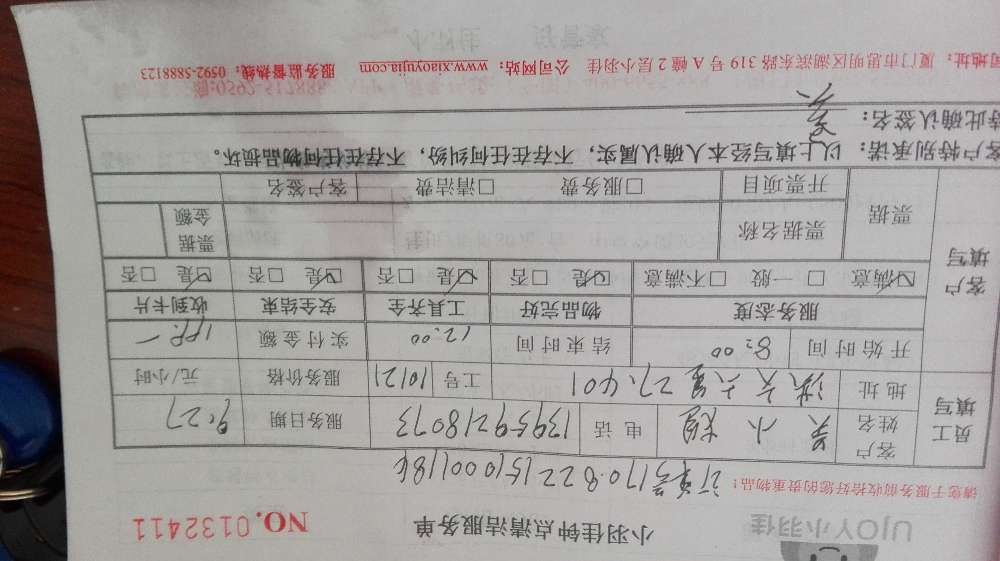 UjOY小羽佳 小羽佳钟点清洁服务单 NO.0132411
请您于服务前收拾好您的贵重物品!
订单号170822151000118
员工填写 客户姓名 吴小 电话 13959218073 服务日期 9.27
地址 27-401 工号 10121 服务价格 元/小时
开始时间 8:00 结束时间 12:00 实付金额
客户填写 服务态度 物品完好 工具齐全 安全结束 收到卡片
☑满意 □一般 □不满意 ☑是 □否 ☑是 □否 ☑是 □否 ☑是 □否
票据 票据名称 票据金额
开票项目 □服务费 □清洁费 客户签名
客户特别承诺: 以上填写经本人确认属实,不存在任何纠纷,不存在任何物品损坏。
特此确认签名:
司地址:厦门市思明区湖滨东路319号A幢2层小羽佳 公司网站:www.xiaoyujia.com 服务监督热线:0592-5888123